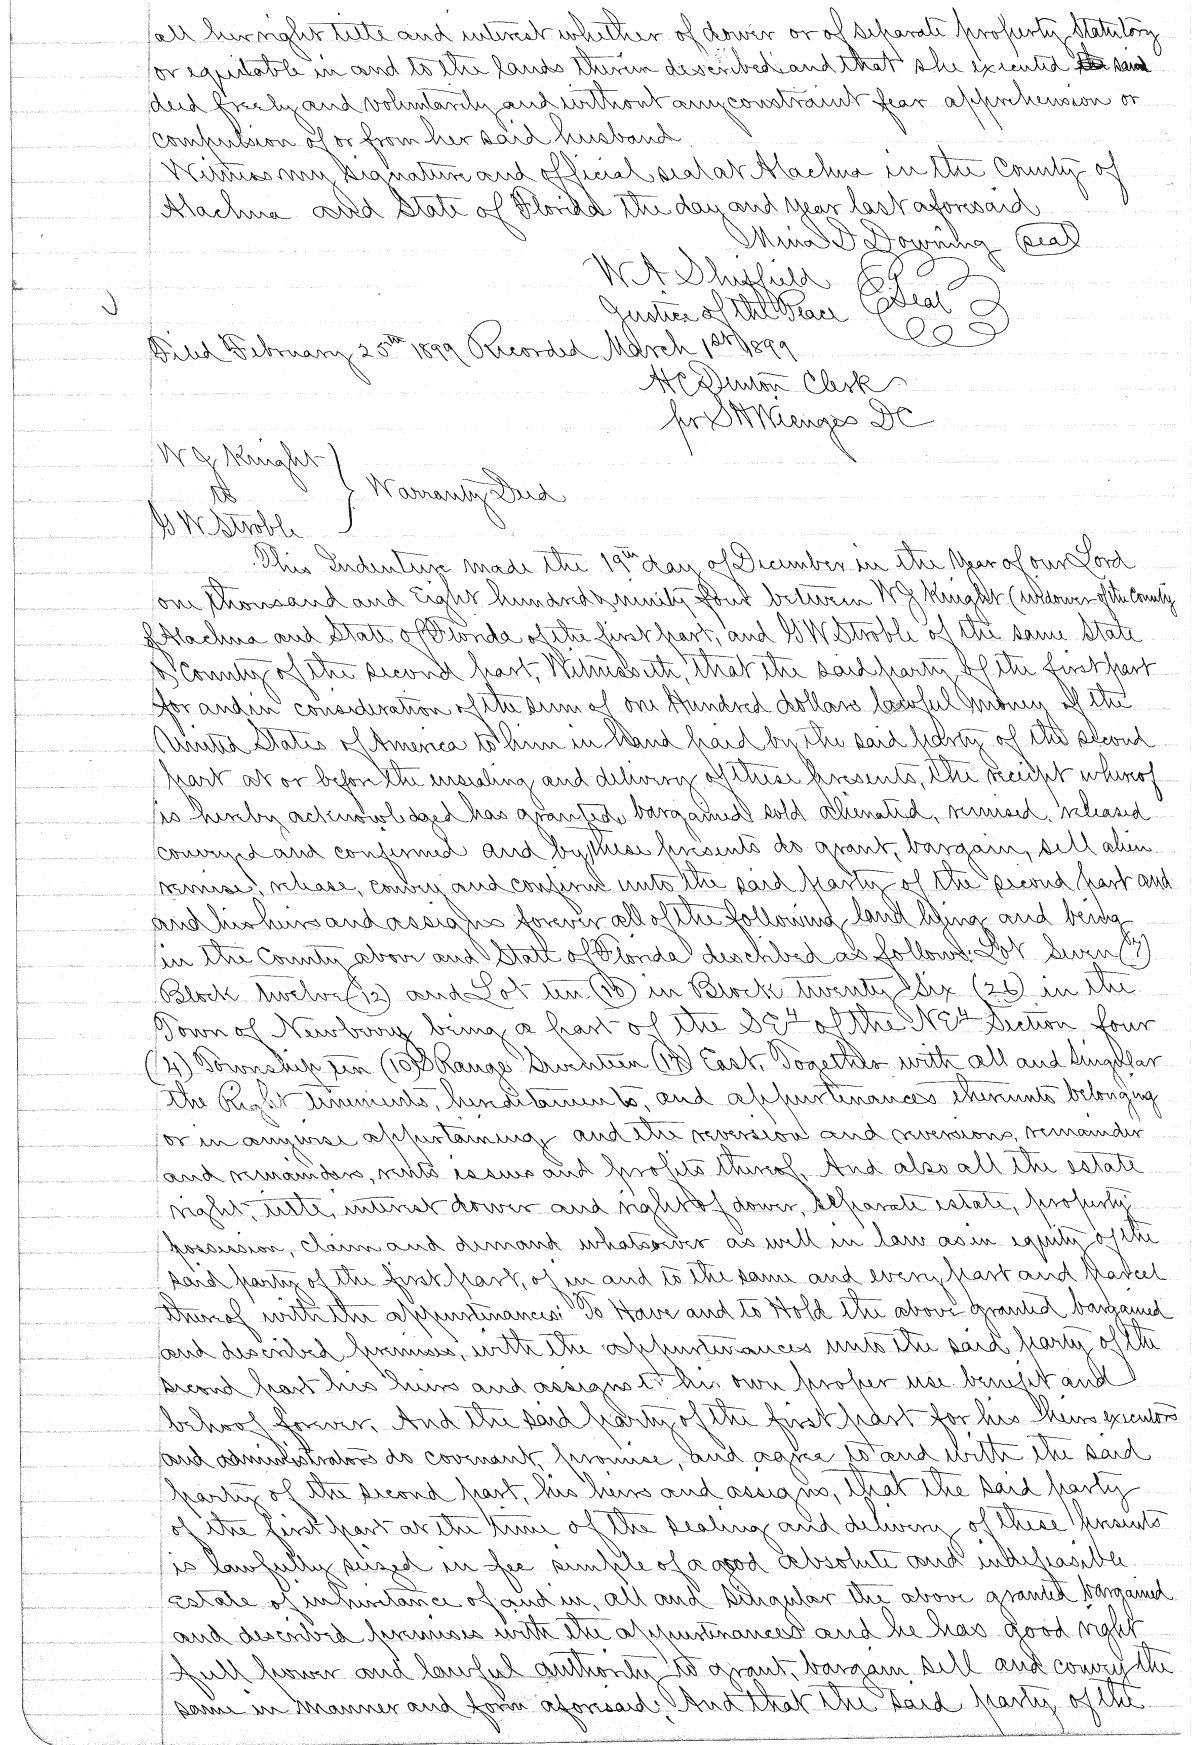 all her right title and interest whether of dower or of separate property Statutory
or equitable in and to the lands therein described and that she executed the said
deed freely and voluntarily and without any constraint fear apprehension or
compulsion of or from her said husband
Witness my signature and official seal at Alachua in the County of
Alachua and State of Florida the day and year last aforesaid
Mina D Downing (seal)
W A Sheffield
Justice of the Peace (Seal)
Filed February 25th 1899 Recorded March 1st 1899
H C Denton Clerk
pr S H Wienges DC
W J Knight
to } Warranty Deed
G W Stroble
This Indenture made the 19th day of December in the Year of our Lord
one thousand and Eight hundred & ninety four between W J Knight (widower of the County
of Alachua and State of Florida of the first part, and G W Stroble of the same State
& County of the second part, Witnesseth, that the said party of the first part
for and in consideration of the sum of one Hundred dollars lawful money of the
United States of America to him in hand paid by the said party of the second
part at or before the ensealing and delivery of these presents, the receipt whereof
is hereby acknowledged has granted, bargained sold alienated, remised, released
conveyed and confirmed and by these presents do grant, bargain, sell alien
remise, release, convey and confirm unto the said party of the second part and
and his heirs and assigns forever all of the following land lying and being
in the County above and State of Florida described as follows: Lot Seven (7)
Block twelve (12) and Lot ten (10) in Block twenty Six (26) in the
Town of Newberry being a part of the SE4 of the NE4 Section four
(4) Township ten (10) S Range Seventeen (17) East, Together with all and Singular
the Right tenements, hereditaments, and appurtenances thereunto belonging
or in anywise appertaining, and the reversion and reversions, remainder
and remainders, rents issues and profits thereof, And also all the estate
right, title, interest dower and right of dower, separate estate, property
possession, claim and demand whatsoever as well in law as in equity of the
said party of the first part, of in and to the same and every part and parcel
thereof with the appurtenances: To Have and to Hold the above granted bargained
and described premises, with the appurtenances unto the said party of the
second part his heirs and assigns to his own proper use benefit and
behoof forever. And the said party of the first part for his heirs executors
and administrators do covenant, promise, and agree to and with the said
party of the second part, his heirs and assigns, that the said party
of the first part at the time of the sealing and delivery of these presents
is lawfully seized in fee simple of a good absolute and indefeasible
Estate of inheritance of and in, all and Singular the above granted bargained
and described premises with the appurtenances and he has good right
full power and lawful authority to grant, bargain sell and convey the
same in manner and form aforesaid; And that the said party of the